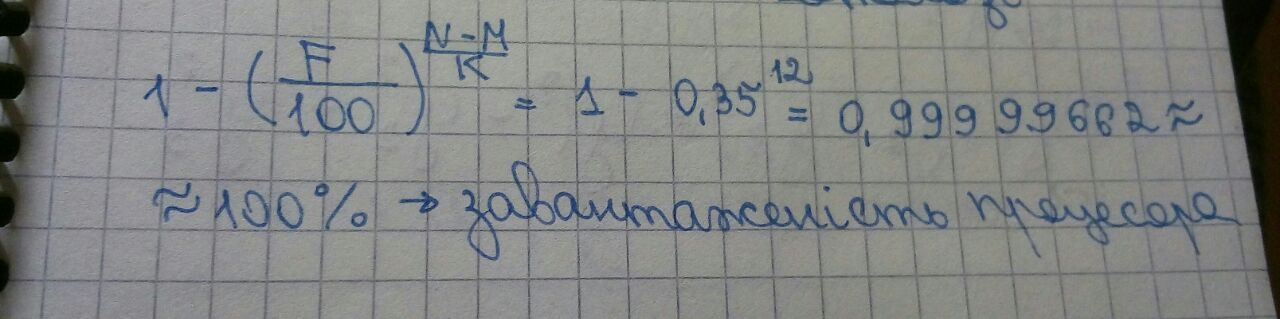 1 - (F/100)^((N-M)/K) = 1 - 0,35^12 = 0,99999662 ≈
≈ 100% → завантаженість процесора